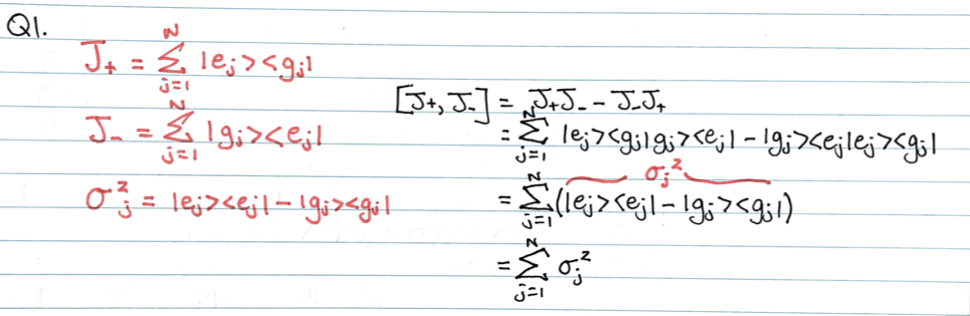 Q1.
J₊ = Σ_{j=1}^{N} |eⱼ><gⱼ|
J₋ = Σ_{j=1}^{N} |gⱼ><eⱼ|
σⱼᶻ = |eⱼ><eⱼ| - |gⱼ><gⱼ|
[J₊, J₋] = J₊J₋ - J₋J₊
= Σ_{j=1}^{N} |eⱼ><gⱼ|gⱼ><eⱼ| - |gⱼ><eⱼ|eⱼ><gⱼ|
σⱼᶻ
= Σ_{j=1}^{N} (|eⱼ><eⱼ| - |gⱼ><gⱼ|)
= Σ_{j=1}^{N} σⱼᶻ